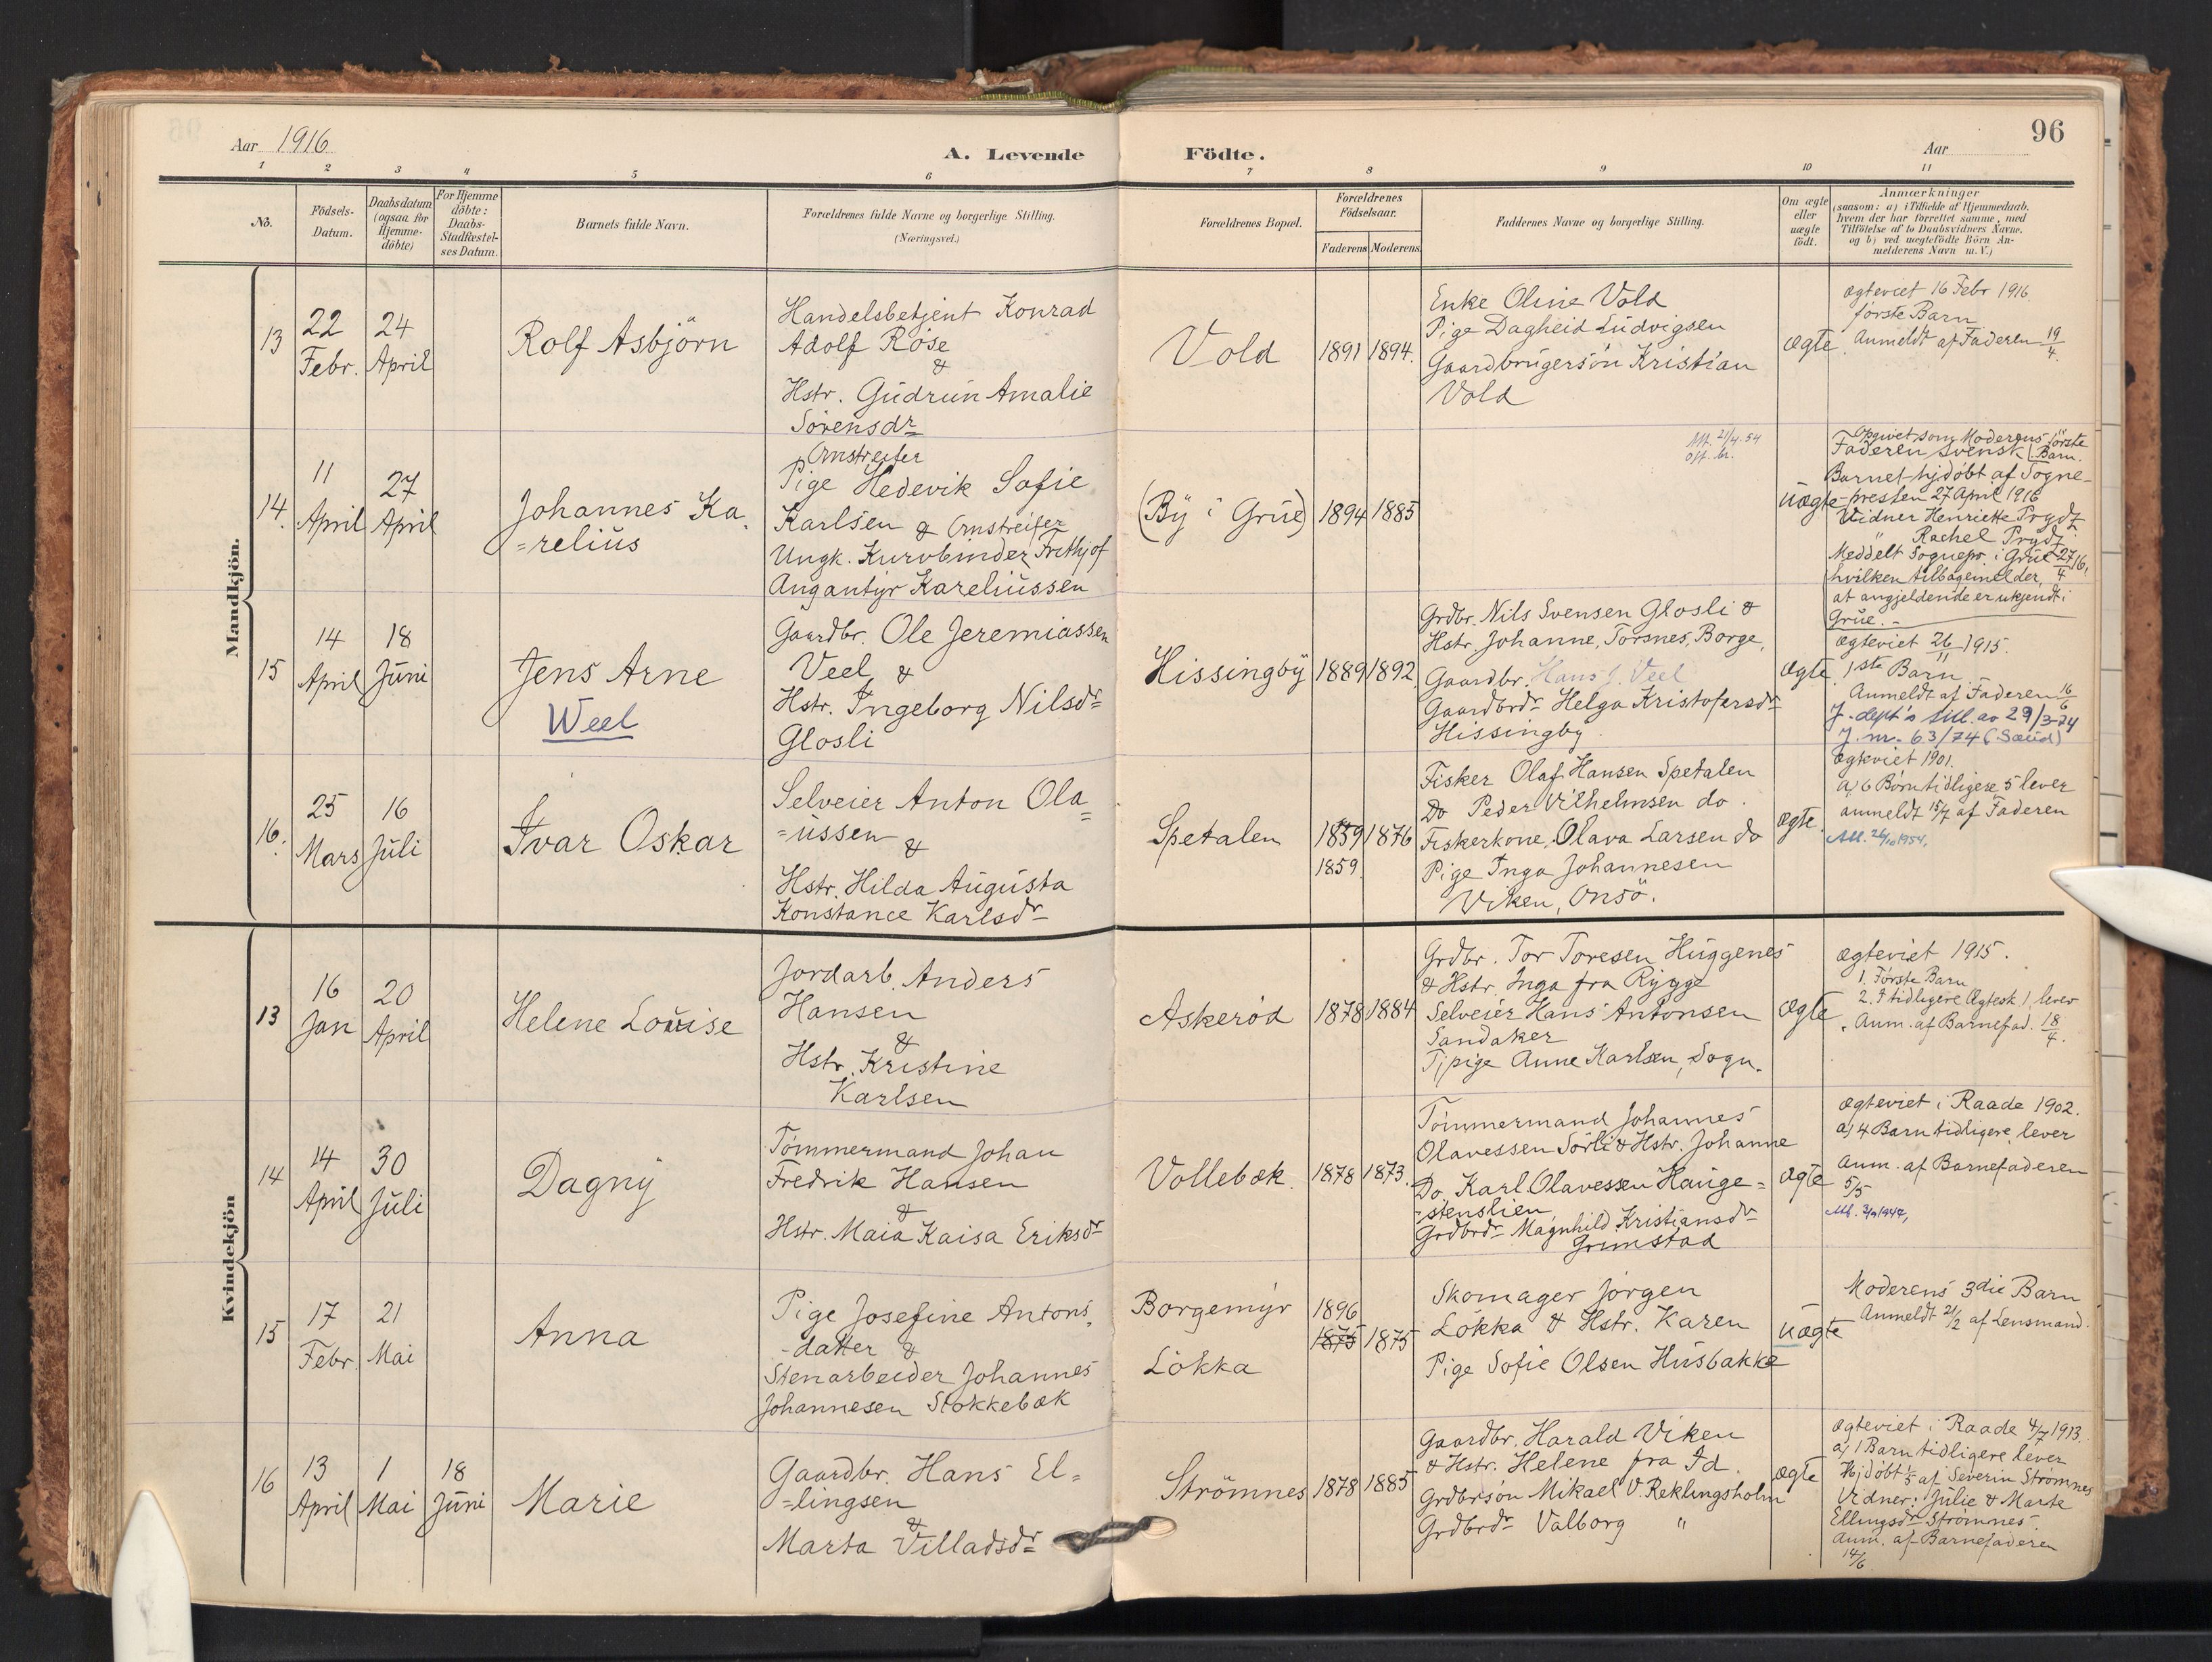 Aar 1916
A. Levende Födte.
Aar
96
1 2 3 4 5 6 7 8 9 10 11
No.
Födsels-
Datum.
Daabsdatum
(ogsaa for
Hjemme-
döbte)
For Hjemme
döbte:
Daabs-
Stadfæstel-
ses Datum.
Barnets fulde Navn.
Forældrenes fulde Navne og borgerlige Stilling.
(Næringsvei.)
Forældrenes Bopæl.
Forældrenes
Födselsaar.
Faderens
Moderens
Faddernes Navne og borgerlige Stilling.
Om ægte
eller
uægte
födt.
Anmærkninger
(saasom: a) i Tilfælde af Hjemmedaab.
hvem der har forrettet samme, med
Tilföielse af to Daabsvidners Navne.
og b) ved uægtefödte Börn An-
melderens Navn m.V.)
Mandkjön.
13
22
Febr.
24
April
Rolf Asbjörn
Handelsbetjent Konrad
Adolf Röse
&
Hstr. Gudrun Amalie
Sörensdr
Vold
1891
1894.
Enke Oline Vold
Pige Dagheid Ludvigsen
Gaardbrugersön Kristian
Vold
ægte
Ægteviet 16 Febr 1916.
förste Barn
Anmeldt af Faderen 19/4.
14.
11
April
27
April
Johannes Ka-
=relius
Omstreifer
Pige Hedevik Sofie
Karlsen & Omstreifer
Ungk. Kurvbinder Frithjof
Angantyr Kareliussen
(By i Grue)
1894
1885
Att. 21/4.54
uægte
Opgivet som Moderens förste
Faderen svensk Barn.
Barnet hjdöbt af Sogne-
presten 27 April 1916
Vidner Henriette Prydz
" Rachel Prydz
Meddelt Sognepr. i Grue 27/4 16,
hvilken tilbagemelder,
at angjeldende er ukjendt i
Grue.-
15
14
April
18
Juni
Jens Arne
Weel
Gaardbr. Ole Jeremiassen
Veel &
Hstr. Ingeborg Nilsdr
Glosli
Hissingby
1889
1892
Grdbr. Nils Svensen Glosli &
Hstr. Johanne, Torsnes, Borge,
Gaardbr. Hans J. Veel
Gaardbrdr Helga Kristofersdr
Hissingby.
ægte
Ægteviet 26/11 1915.
1ste Barn
Anmeldt af Faderen 16/6
J-dept's till. av 29/3-74
J.nr. 63/74 (Saud)
16.
25
Mars
16
Juli
Ivar Oskar
Selveier Anton Ola=
=ussen &
Hstr. Hilda Augusta
Konstance Karlsdr
Spetalen
1859
1859.
1876
Fisker Olaf Hansen Spetalen
Do Peder Vilhelmsen do.
Fiskerkone, Olava Larsen do
Pige Inga Johannesen
Viken, Onsö.
ægte
Ægteviet 1901.
a) 6 Börn tidligere 5 lever
anmeldt 15/7 af Faderen
Att. 26/10 1954,
Kvindekjön
13
16
Jan
20
April
Helene Louise
Jordarb. Anders
Hansen
&
Hstr. Kristine
Karlsen
Askeröd
1878
1884
Grdbr. Tor Toresen Huggenes
& Hstr. Inga fra Rygge
Selveier Hans Antonsen
Sandaker
Tjpige Anne Karlsen, Sogn.
ægte
Ægteviet 1915.
1. Förste Barn
2. I tidligere Ægtesk 1 lever
Anm. af Barnefad. 18/4.
14
14
April
30
Juli
Dagny
Tömmermand Johan
Fredrik Hansen
&
Hstr. Maia Kaisa Eriksdr
Vollebæk.
1878
1873.
Tömmermand Johannes
Olavessen Sörli & Hstr. Johanne
Do. Karl Olavessen Hauge=
=stenslien
Grdbrdr Magnhild Kristiansdr
Grimstad
ægte
Ægteviet i Raade 1902.
a) 4 Barn tidligere lever
Anm. af Barnefaderen
5/5
15
17
Febr.
21
Mai
Anna
Pige Josefine Antons,
-datter &
Stenarbeider Johannes
Johannesen Stokkebæk
Borgemyr
Lökka
1896
1875
1875
Skomager Jörgen
Lökka & Hstr. Karen
Pige Sofie Olsen Husbakke
uægte
Moderens 3die Barn
Anmeldt 21/2 af Lensmand.
16
13
April
1
Mai
18
Juni
Marie
Gaardbr. Hans El=
=lingsen
&
Marta Villadsdr
Strömnes
1878
1885
Gaardbr. Harald Viken
& Hstr. Helene fra Id.
Grdbrsön Mikael V. Reklingsholm
Grdbrdr Valborg "
ægte
Ægteviet i Raade 4/7 1913.
a) 1 Barn tidligere lever
Hjdöbt 1/5 af Severin Strömnes
Vidner: Julie & Marte
Ellingsdr Strömnes.
Anm. af Barnefaderen
14/6